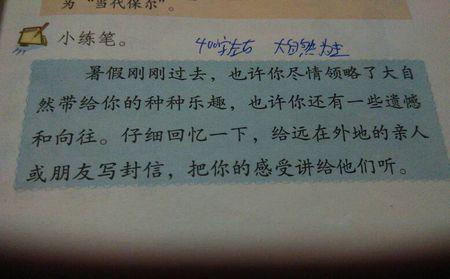 为“当代保尔”。
小练笔。 400字左右 大自然为主
暑假刚刚过去，也许你尽情领略了大自
然带给你的种种乐趣，也许你还有一些遗憾
和向往。仔细回忆一下，给远在外地的亲人
或朋友写封信，把你的感受讲给他们听。